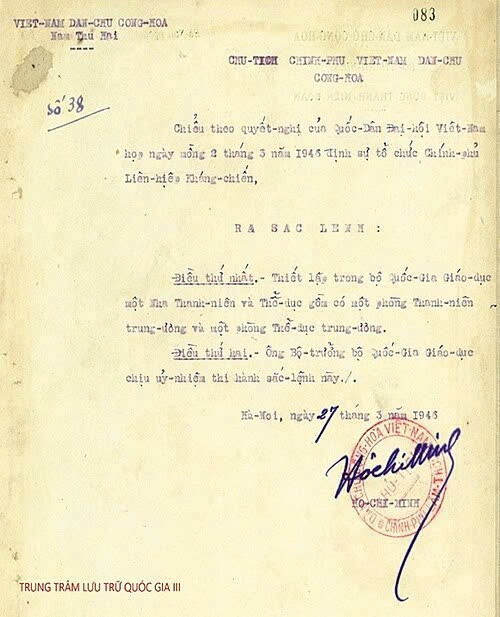 083
VIỆT-NAM DÂN-CHỦ CỘNG-HOÀ
Năm Thứ Hai
Số 38
CHỦ-TỊCH CHÍNH-PHỦ VIỆT-NAM DÂN-CHỦ
CỘNG-HOÀ
Chiểu theo quyết-nghị của Quốc-Dân Đại-hội Việt-Nam
họp ngày mồng 2 tháng 3 năm 1946 định sự tổ chức Chính-phủ
Liên-hiệp Kháng-chiến,
RA SẮC LỆNH :
Điều thứ nhất.- Thiết lập trong bộ Quốc-Gia Giáo-dục
một Nha Thanh-niên và Thể-dục gồm có một phòng Thanh-niên
trung-ương và một phòng Thể-dục trung-ương.
Điều thứ hai.- Ông Bộ-trưởng bộ Quốc-Gia Giáo-dục
chịu uỷ-nhiệm thi hành sắc-lệnh này./.
Hà-Nội, ngày 27 tháng 3 năm 1946
Hồ Chí Minh
HỒ-CHÍ-MINH
TRUNG TRÂM LƯU TRỮ QUỐC GIA III